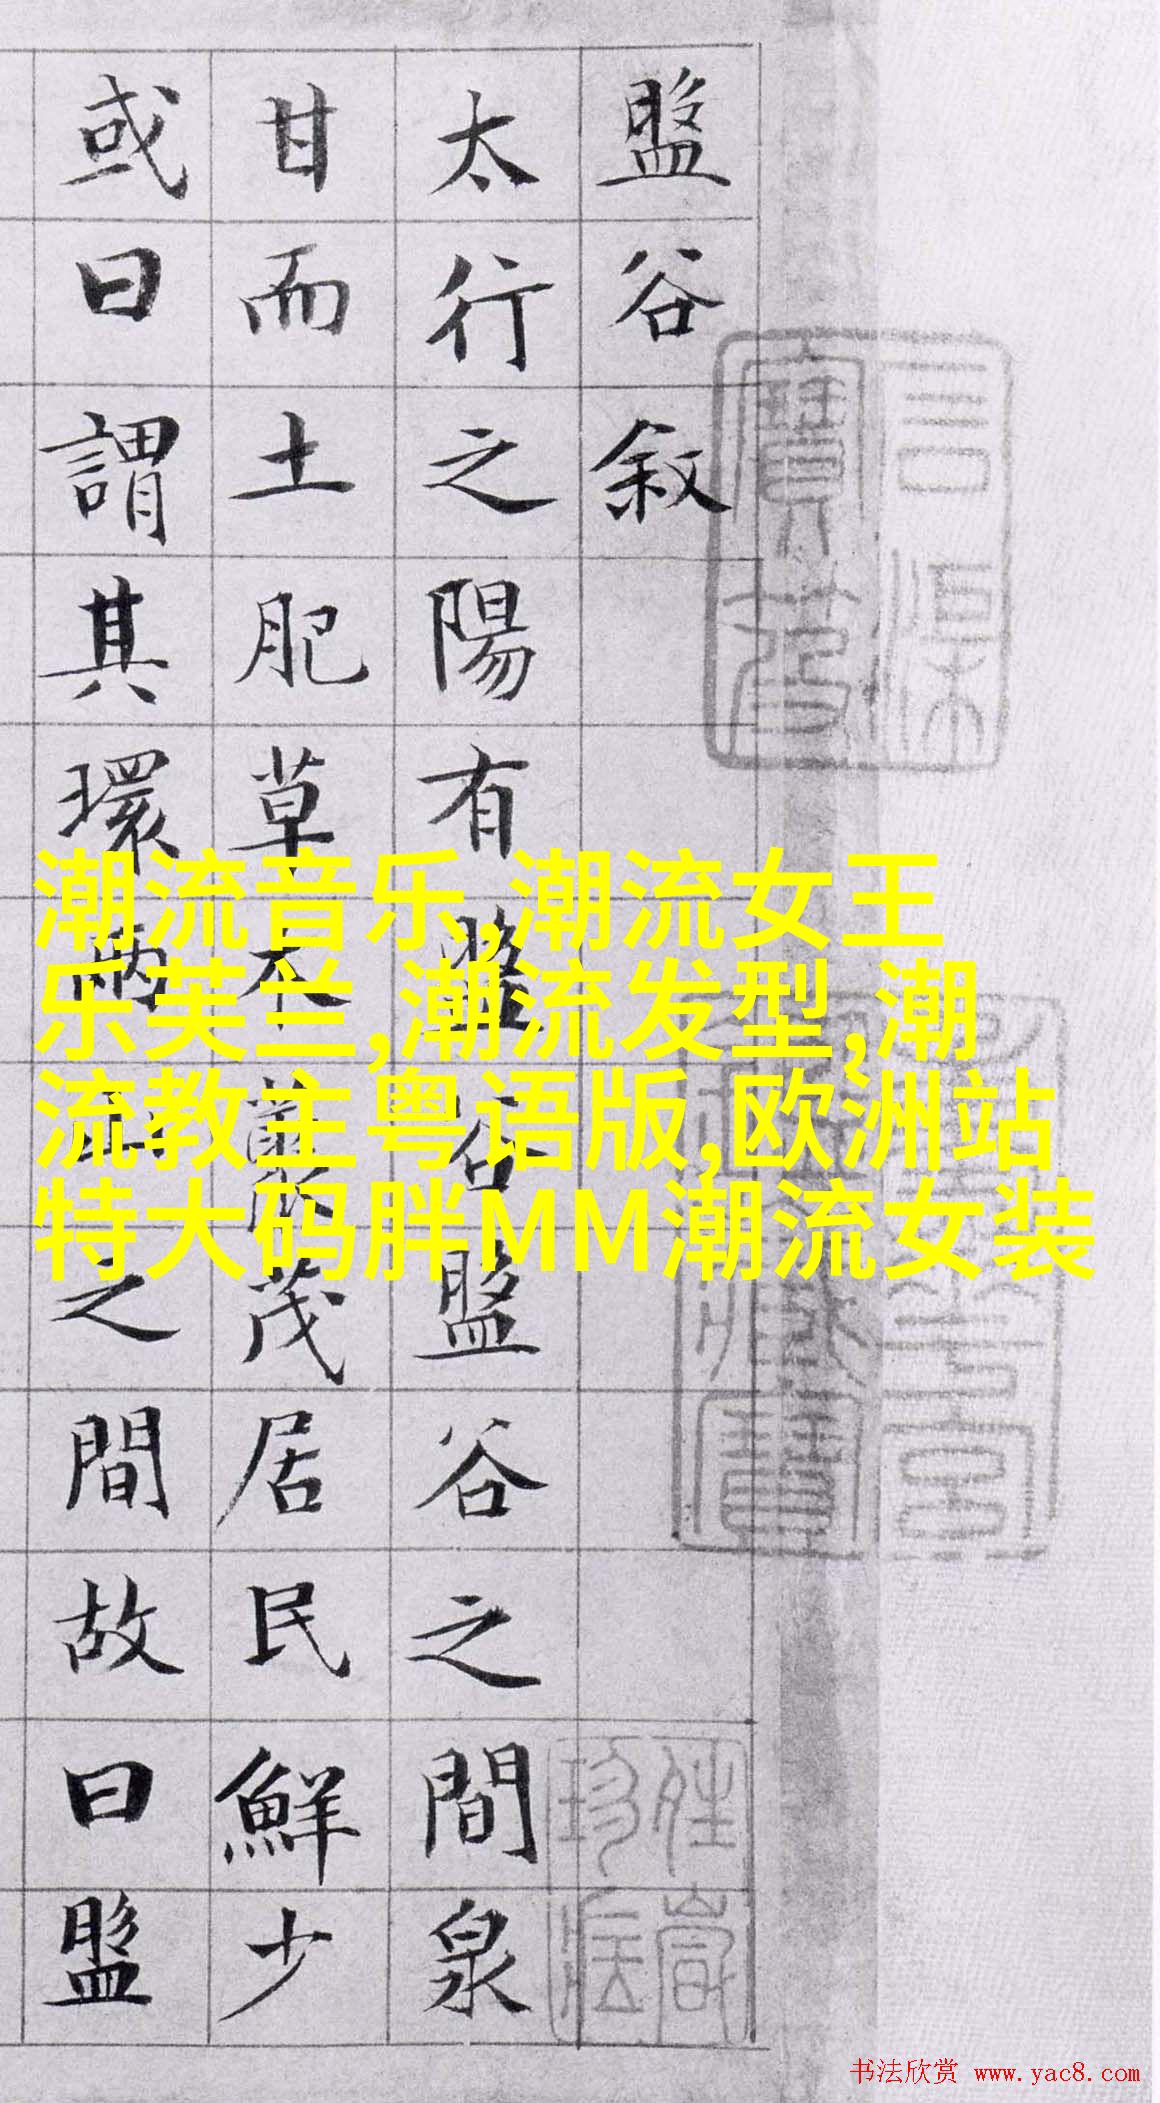 盤谷叙
太行之陽有盤谷盤谷之間泉
甘而土肥草木茂居民鮮少
或曰謂其環兩山之間故曰盤
潮流音乐,潮流女王
乐芙兰,潮流发型,潮
流教主粤语版,欧洲站
特大码胖MM潮流女装
书法欣赏 www.yac8.com